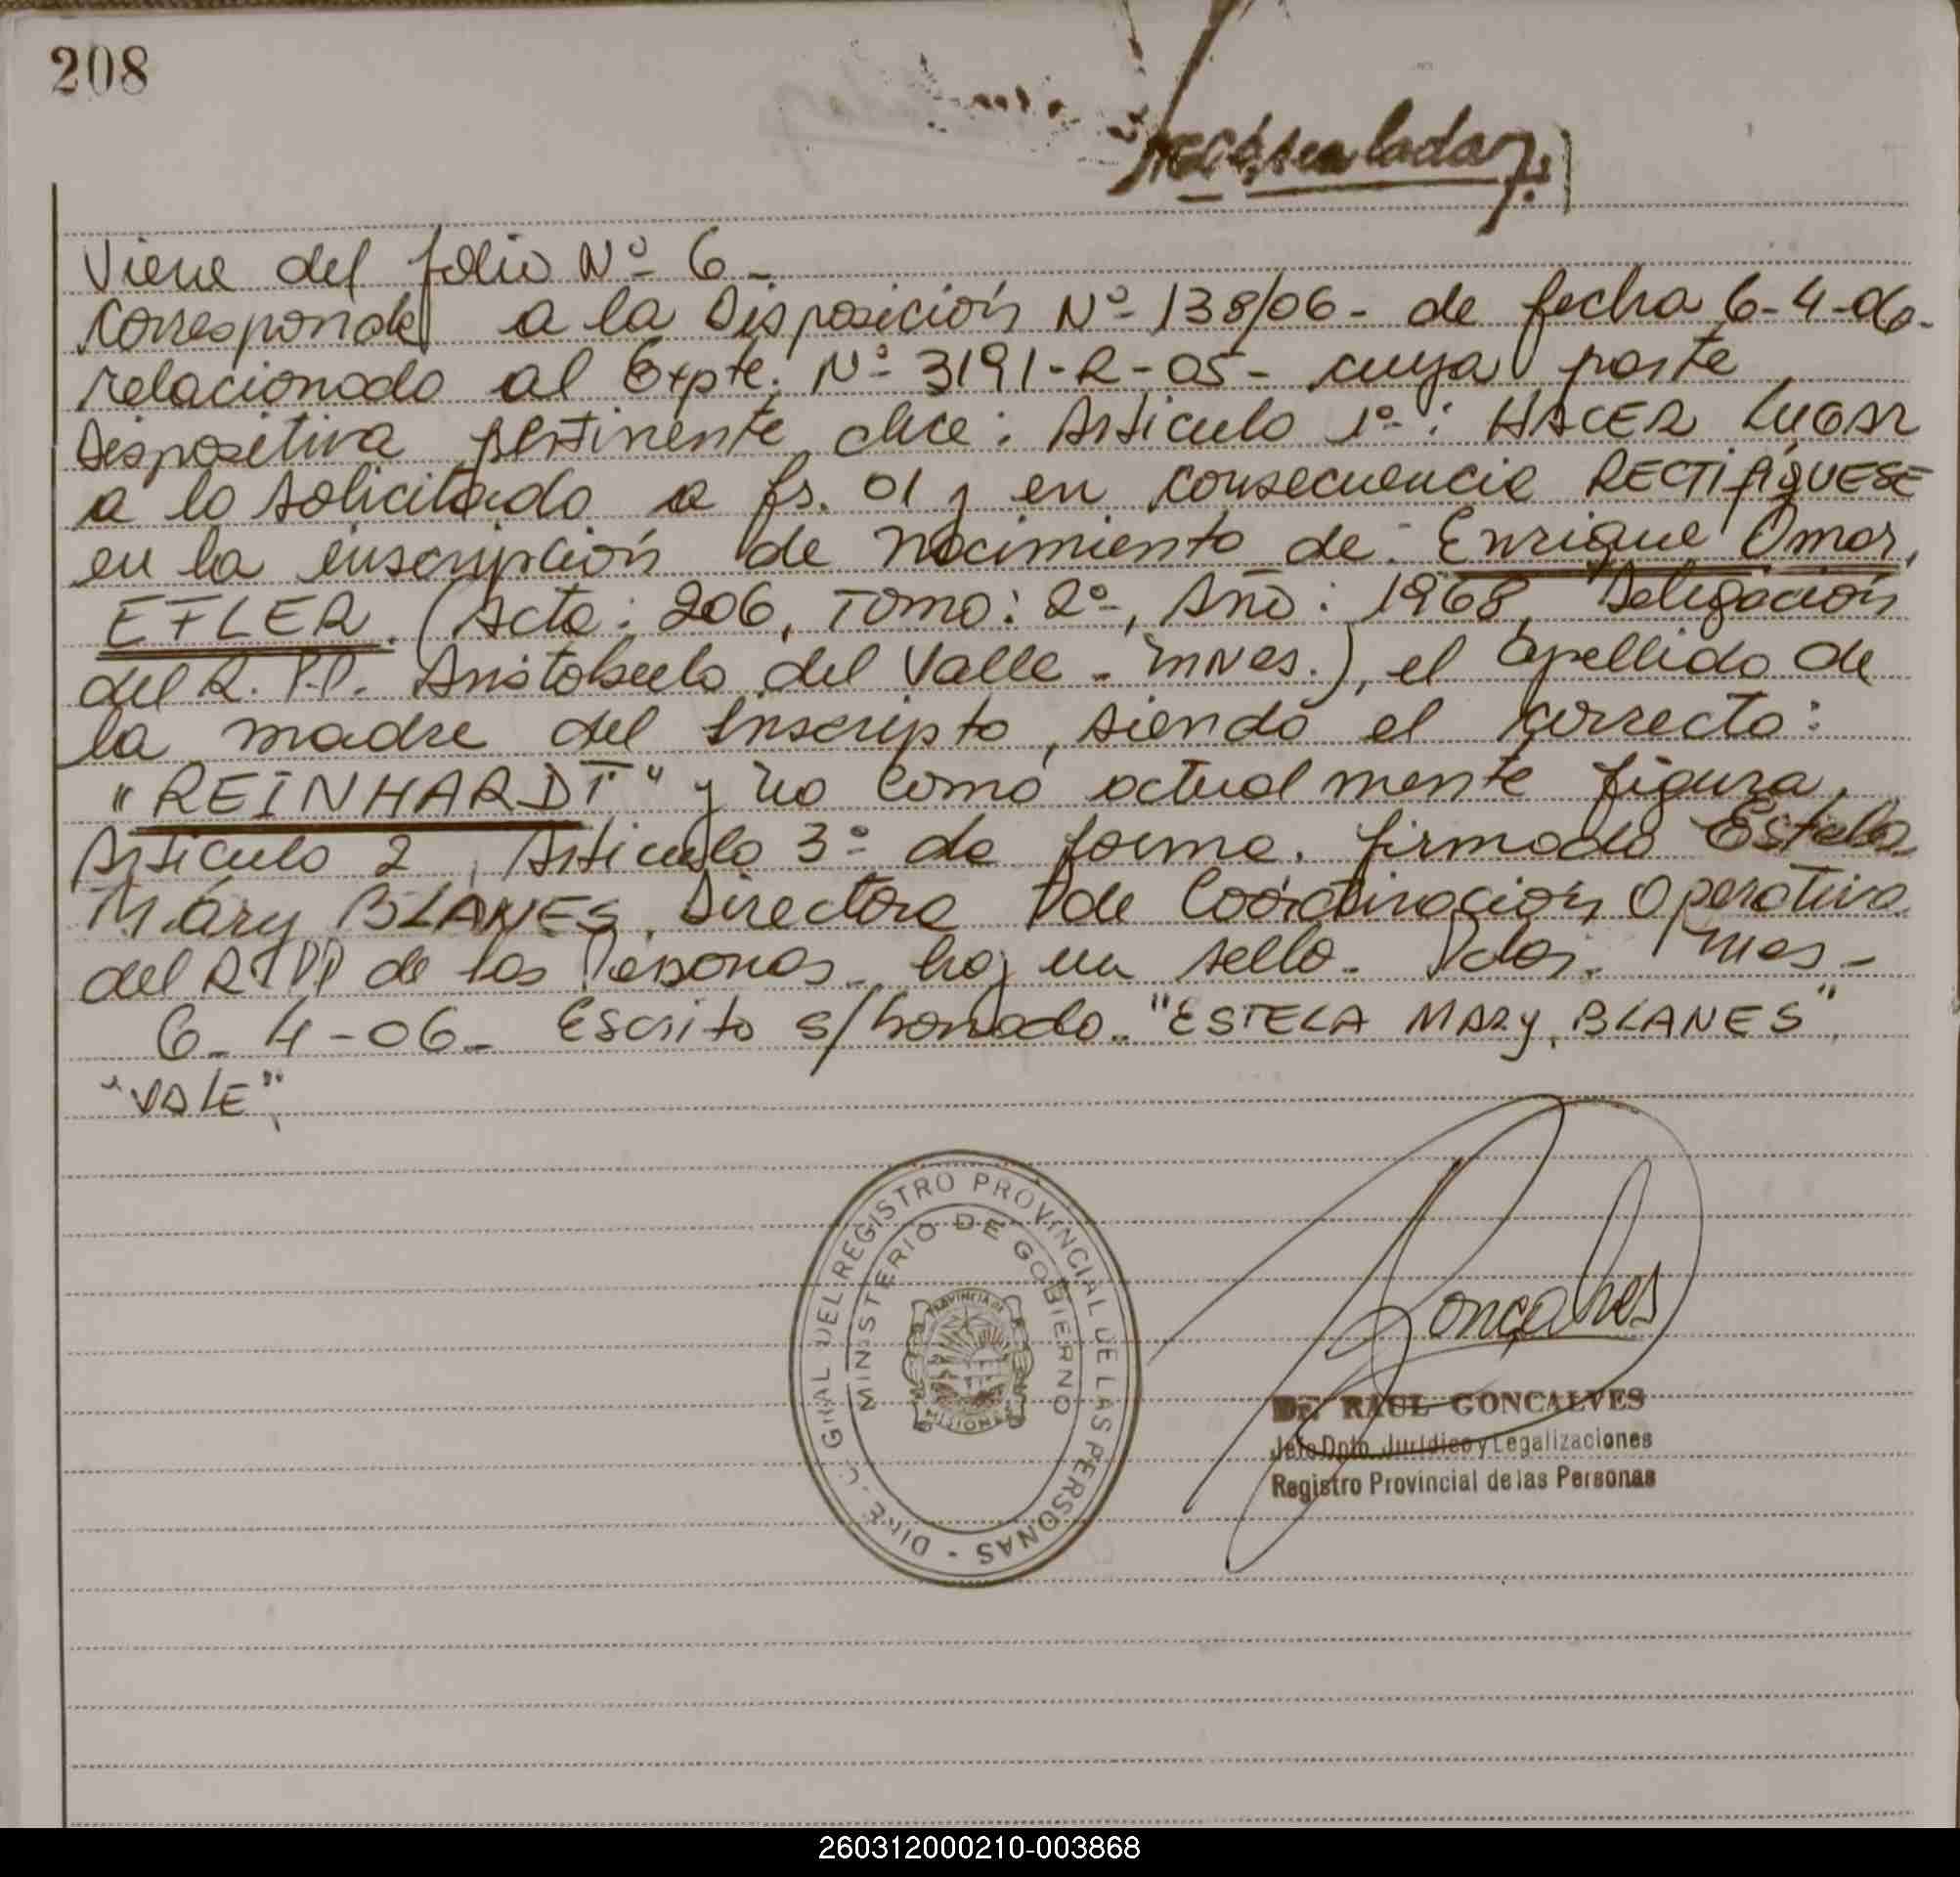 208
Viene del folio Nº 6 -
Corresponde a la Disposición Nº 138/06 - de fecha 6-4-06-
relacionado al Expte. Nº 3191-R-05 - cuya parte
Dispositiva pertinente dice: Articulo 1º: HACER LUGAR
a lo solicitado a fs. 01 y en consecuencia RECTIFIQUESE
en la inscripción de nacimiento de Enrique Omar,
EFLER. (Acta: 206, Tomo: 2º, Año: 1968, Delegación
del R. P.P. Aristobulo del Valle - Mnes.), el apellido de
la madre del Inscripto, siendo el correcto:
"REINHARDT" y no como actualmente figura.
Articulo 2, Articulo 3º de forma. firmado Estela
Mary BLANES. Directora de Coordinación Operativa
del R. PP de las Personas - hay un sello - Pdas. Mnes -
6-4-06- Escrito s/borrado.. "ESTELA MARY BLANES"
"VALE"
DIREC. GRAL DEL REGISTRO PROVINCIAL DE LAS PERSONAS -
MINISTERIO DE GOBIERNO
PROVINCIA DE
MISIONES
Gonçalves
Dr. RAUL GONCALVES
Jefe Dpto. Jurídico y Legalizaciones
Registro Provincial de las Personas
260312000210-003868